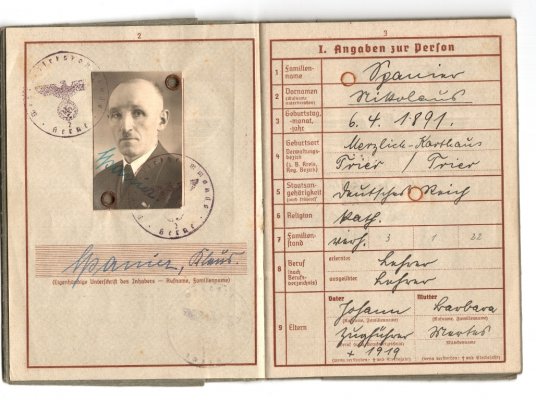 2
Spanier, Klaus
(Eigenhändige Unterschrift des Inhabers — Rufname, Familienname)
3
I. Angaben zur Person
1 Familien-
name
Spanier
2 Vornamen
(Rufname
unterstreichen)
Nikolaus
3 Geburtstag,
-monat,
-jahr
6. 4. 1891.
4 Geburtsort
Verwaltungs-
bezirk
(z. B. Kreis,
Reg. Bezirk)
Merzlich-Karthaus
Trier / Trier
5 Staatsan-
gehörigkeit
(auch frühere)
Deutsches Reich
6 Religion
kath.
7 Familien-
stand
verh. 3 1 22
8 Beruf
(nach
Berufs-
verzeichnis)
erlernter
Lehrer
ausgeübter
Lehrer
9 Eltern
Vater
Johann
(Rufname, Familienname)
Zugführer
+ 1919
(wenn verstorben: † und Sterbejahr)
Mutter
Barbara
(Rufname, Familienname)
Mertes
(Mädchenname)
(wenn verstorben: † und Sterbejahr)